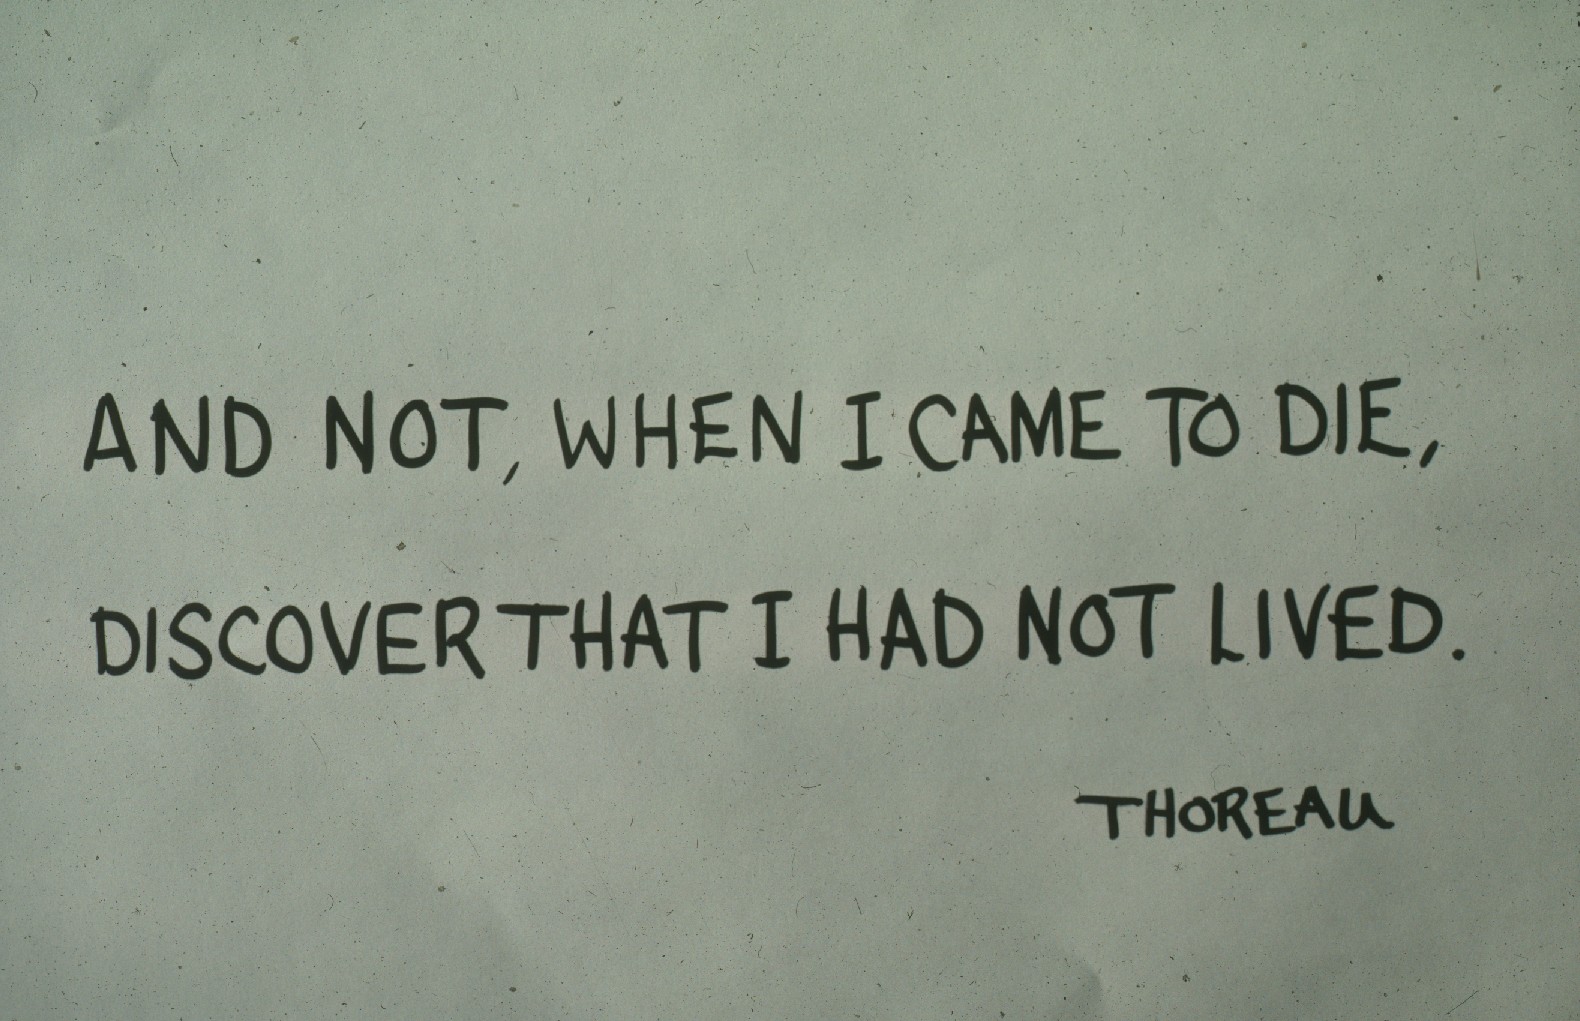 AND NOT, WHEN I CAME TO DIE,
DISCOVER THAT I HAD NOT LIVED.
THOREAU